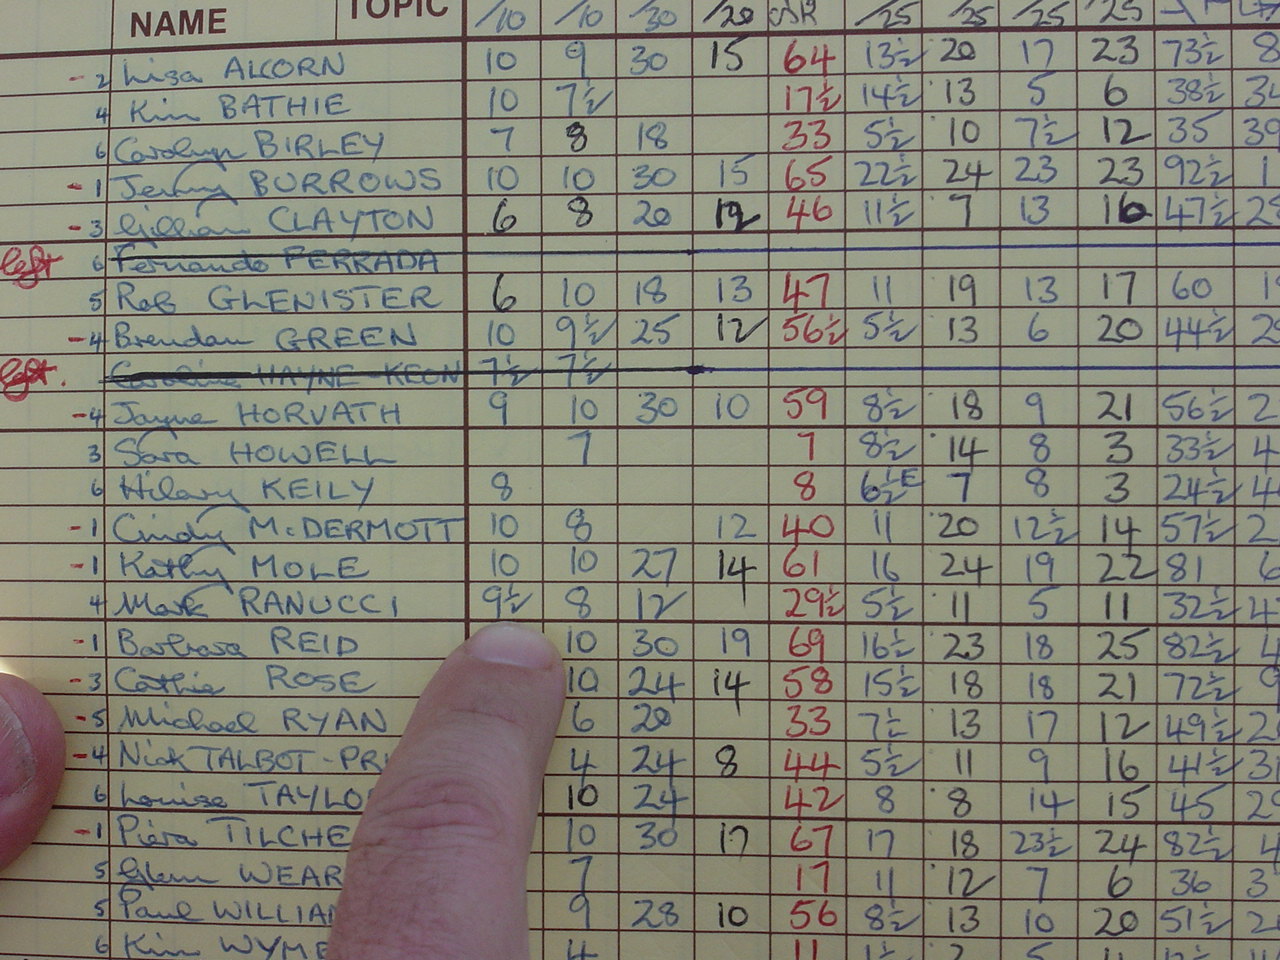 NAME TOPIC /10 /10 /30 /20 /25 /25 /25 /25
-2 Lisa ALCORN 10 9 30 15 64 13½ 20 17 23 73½ 8
4 Kim BATHIE 10 7½ 17½ 14½ 13 5 6 38½ 34
6 Carolyn BIRLEY 7 8 18 33 5½ 10 7½ 12 35 39
-1 Jeremy BURROWS 10 10 30 15 65 22½ 24 23 23 92½ 1
-3 Gillian CLAYTON 6 8 20 12 46 11½ 7 13 16 47½ 28
left 6 Fernando FERRADA
5 Rob GLENISTER 6 10 18 13 47 11 19 13 17 60 19
-4 Brendan GREEN 10 9½ 25 12 56½ 5½ 13 6 20 44½ 29
left. Caroline HAYNE-KEON 7½ 7½
-4 Jayne HORVATH 9 10 30 10 59 8½ 18 9 21 56½ 2
3 Sara HOWELL 7 7 8½ 14 8 3 33½ 4
6 Hilary KEILY 8 8 6½E 7 8 3 24½ 4
-1 Cindy McDERMOTT 10 8 12 40 11 20 12½ 14 57½ 2
-1 Kathy MOLE 10 10 27 14 61 16 24 19 22 81 6
4 Mark RANUCCI 9½ 8 12 29½ 5½ 11 5 11 32½ 4
-1 Barbara REID 10 30 19 69 16½ 23 18 25 82½ 4
-3 Cathie ROSE 10 24 14 58 15½ 18 18 21 72½ 9
-5 Michael RYAN 6 20 33 7½ 13 17 12 49½ 2
-4 Nick TALBOT-PRI 4 24 8 44 5½ 11 9 16 41½ 31
6 Louise TAYLO 10 24 42 8 8 14 15 45 29
-1 Piera TILCHE 10 30 17 67 17 18 23½ 24 82½ 4
5 Glenn WEAR 7 17 11 12 7 6 36 3
5 Paul WILLIA 9 28 10 56 8½ 13 10 20 51½ 2
6 Kim WYME 4 11